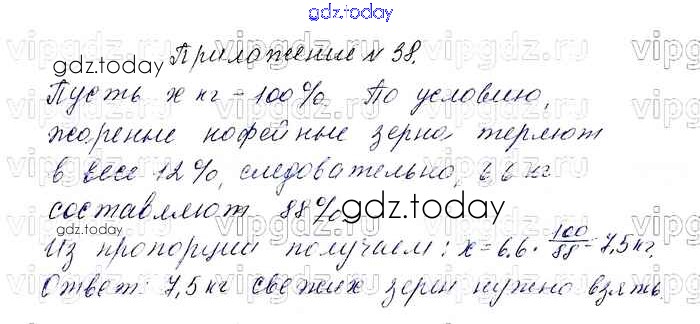 gdz.today
Приложение № 38.
gdz.today
Пусть x кг - 100%. По условию,
жареные кофейные зерна теряют
в весе 12%, следовательно, 6,6 кг
составляют 88%.
gdz.today
Из пропорции получаем: x = 6,6 · 100/88 = 7,5 кг.
Ответ: 7,5 кг свежих зерен нужно взять.